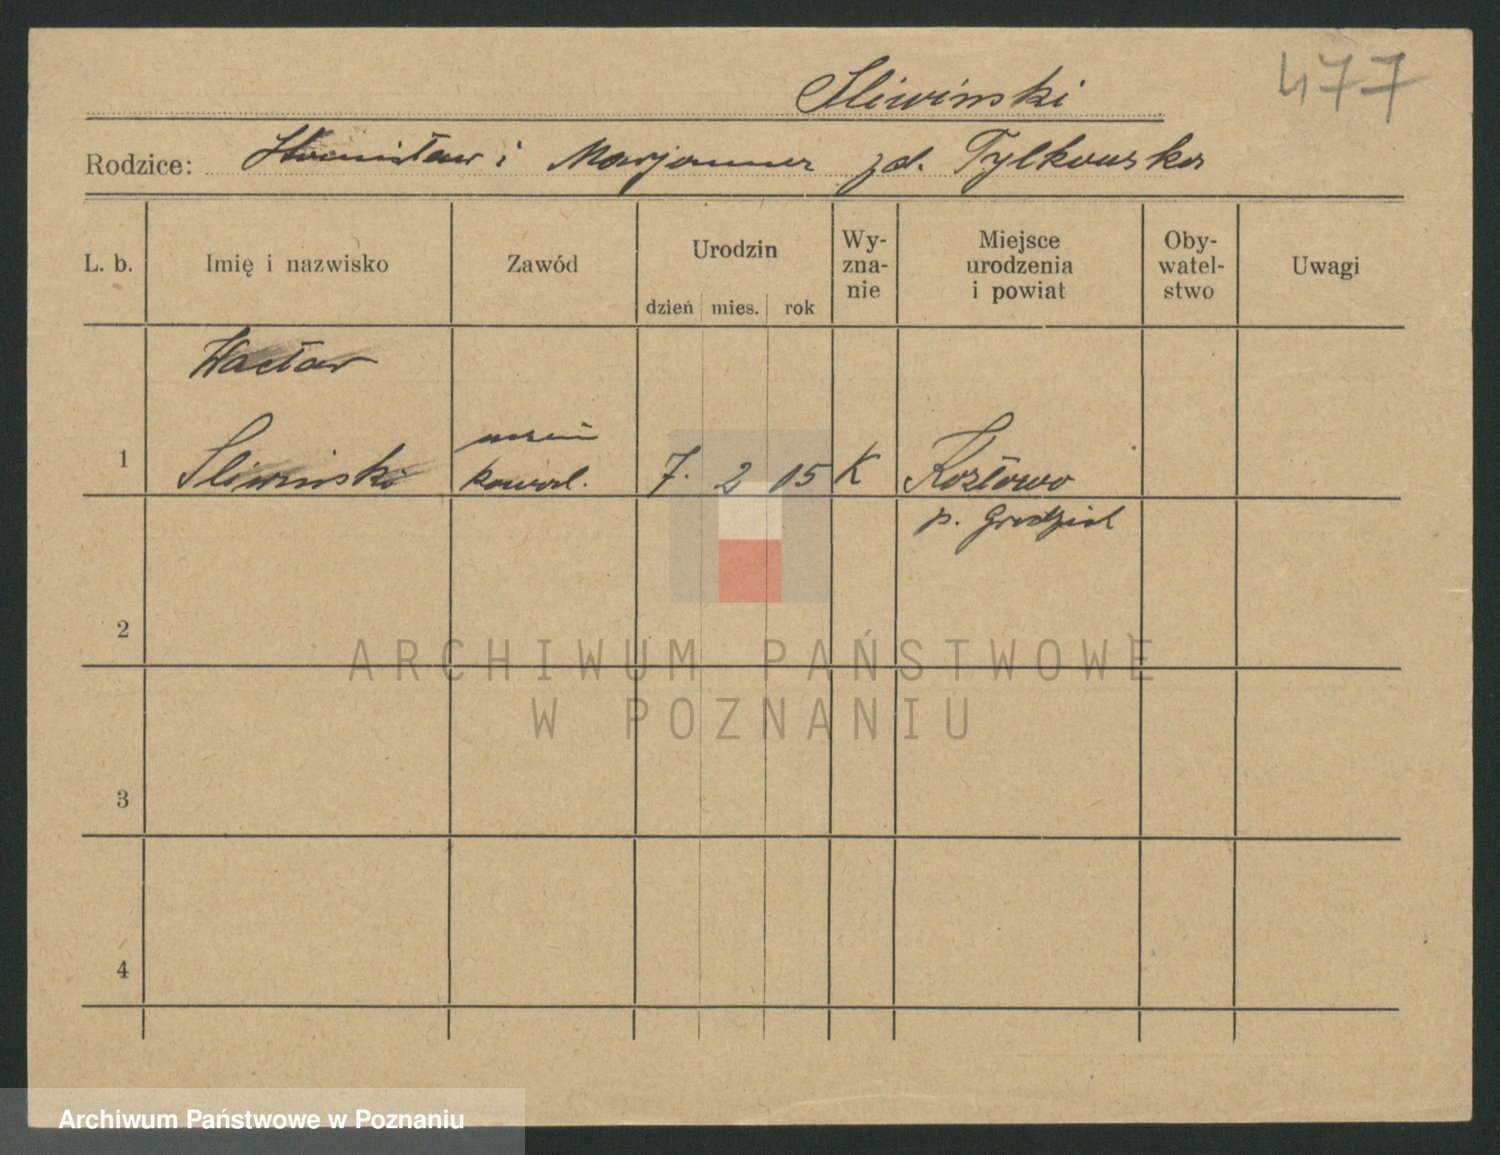 Sliwinski 477
Rodzice: Stanisław i Marjanna zd. Tylkowska
L. b. Imię i nazwisko Zawód Urodzin dzień mies. rok Wy-zna-nie Miejsce urodzenia i powiat Oby-watel-stwo Uwagi
Wacław
1 Sliwiński uczeń kowal. 7. 2 05 K Kozłowo
p. Grodzisk
2
3
4
ARCHIWUM PAŃSTWOWE
W POZNANIU
Archiwum Państwowe w Poznaniu